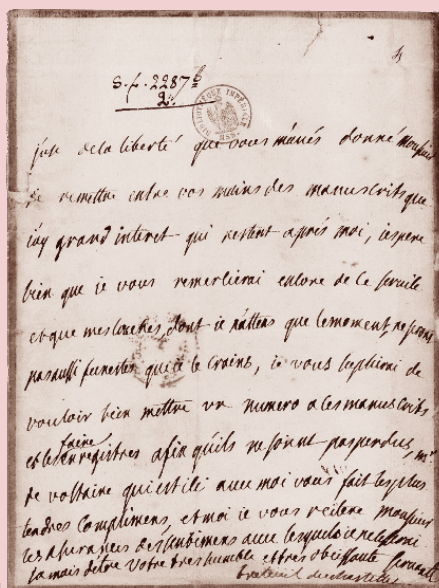 S. f. 2287 b
2.
BIBLIOTHEQUE IMPERIALE
MSS.
j'use de la liberté que vous m'avés donné monsieur
de remettre entre vos mains des manuscrits que
j'ay grand interet qui restent après moi, j'espere
bien que je vous remercierai encore de ce service
et que mes couches, dont je n'attens que le moment, ne seront
pas aussi funestes que je le crains, je vous suplierai de
vouloir bien mettre un numero a ces manuscrits
et les faire enregistrer afin qu'ils ne soient pas perdus, mr.
de voltaire qui est ici avec moi vous fait les plus
tendres complimens, et moi je vous reitere monsieur
les assurances des sentimens avec lesquels je ne cesserai
jamais d'être votre tres humble et tres obeissante servante
breteuil du chastellet